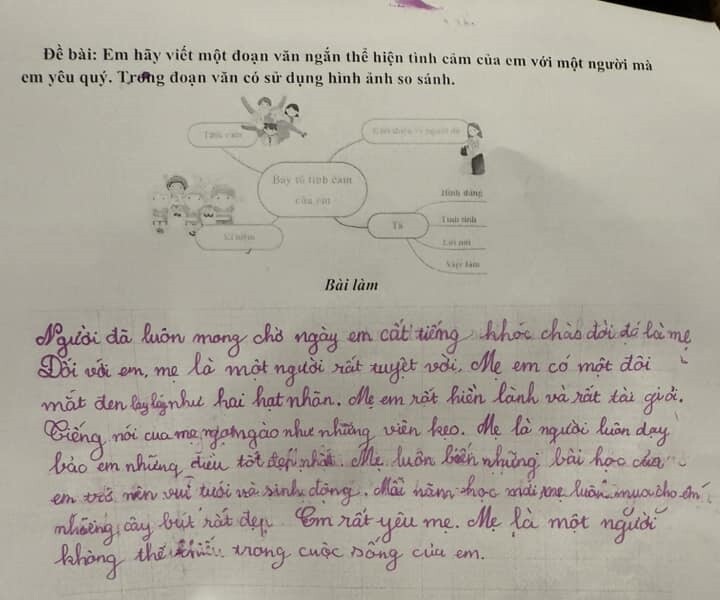 Đề bài: Em hãy viết một đoạn văn ngắn thể hiện tình cảm của em với một người mà
em yêu quý. Trong đoạn văn có sử dụng hình ảnh so sánh.
Tình cảm
Giới thiệu về người đó
Bày tỏ tình cảm
của em
Hình dáng
Tả
Tính tình
Lời nói
Việc làm
Kỉ niệm
Bài làm
Người đã luôn mong chờ ngày em cất tiếng khóc chào đời đó là mẹ
Đối với em, mẹ là một người rất tuyệt vời. Mẹ em có một đôi
mắt đen láy như hai hạt nhãn. Mẹ em rất hiền lành và rất tài giỏi.
Tiếng nói của mẹ ngọt ngào như những viên kẹo. Mẹ là người luôn dạy
bảo em những điều tốt đẹp nhất. Mẹ luôn biến những bài học của
em trở nên vui tươi và sinh động. Mỗi năm học mới mẹ luôn mua cho em
những cây bút rất đẹp. Em rất yêu mẹ. Mẹ là một người
không thể thiếu trong cuộc sống của em.